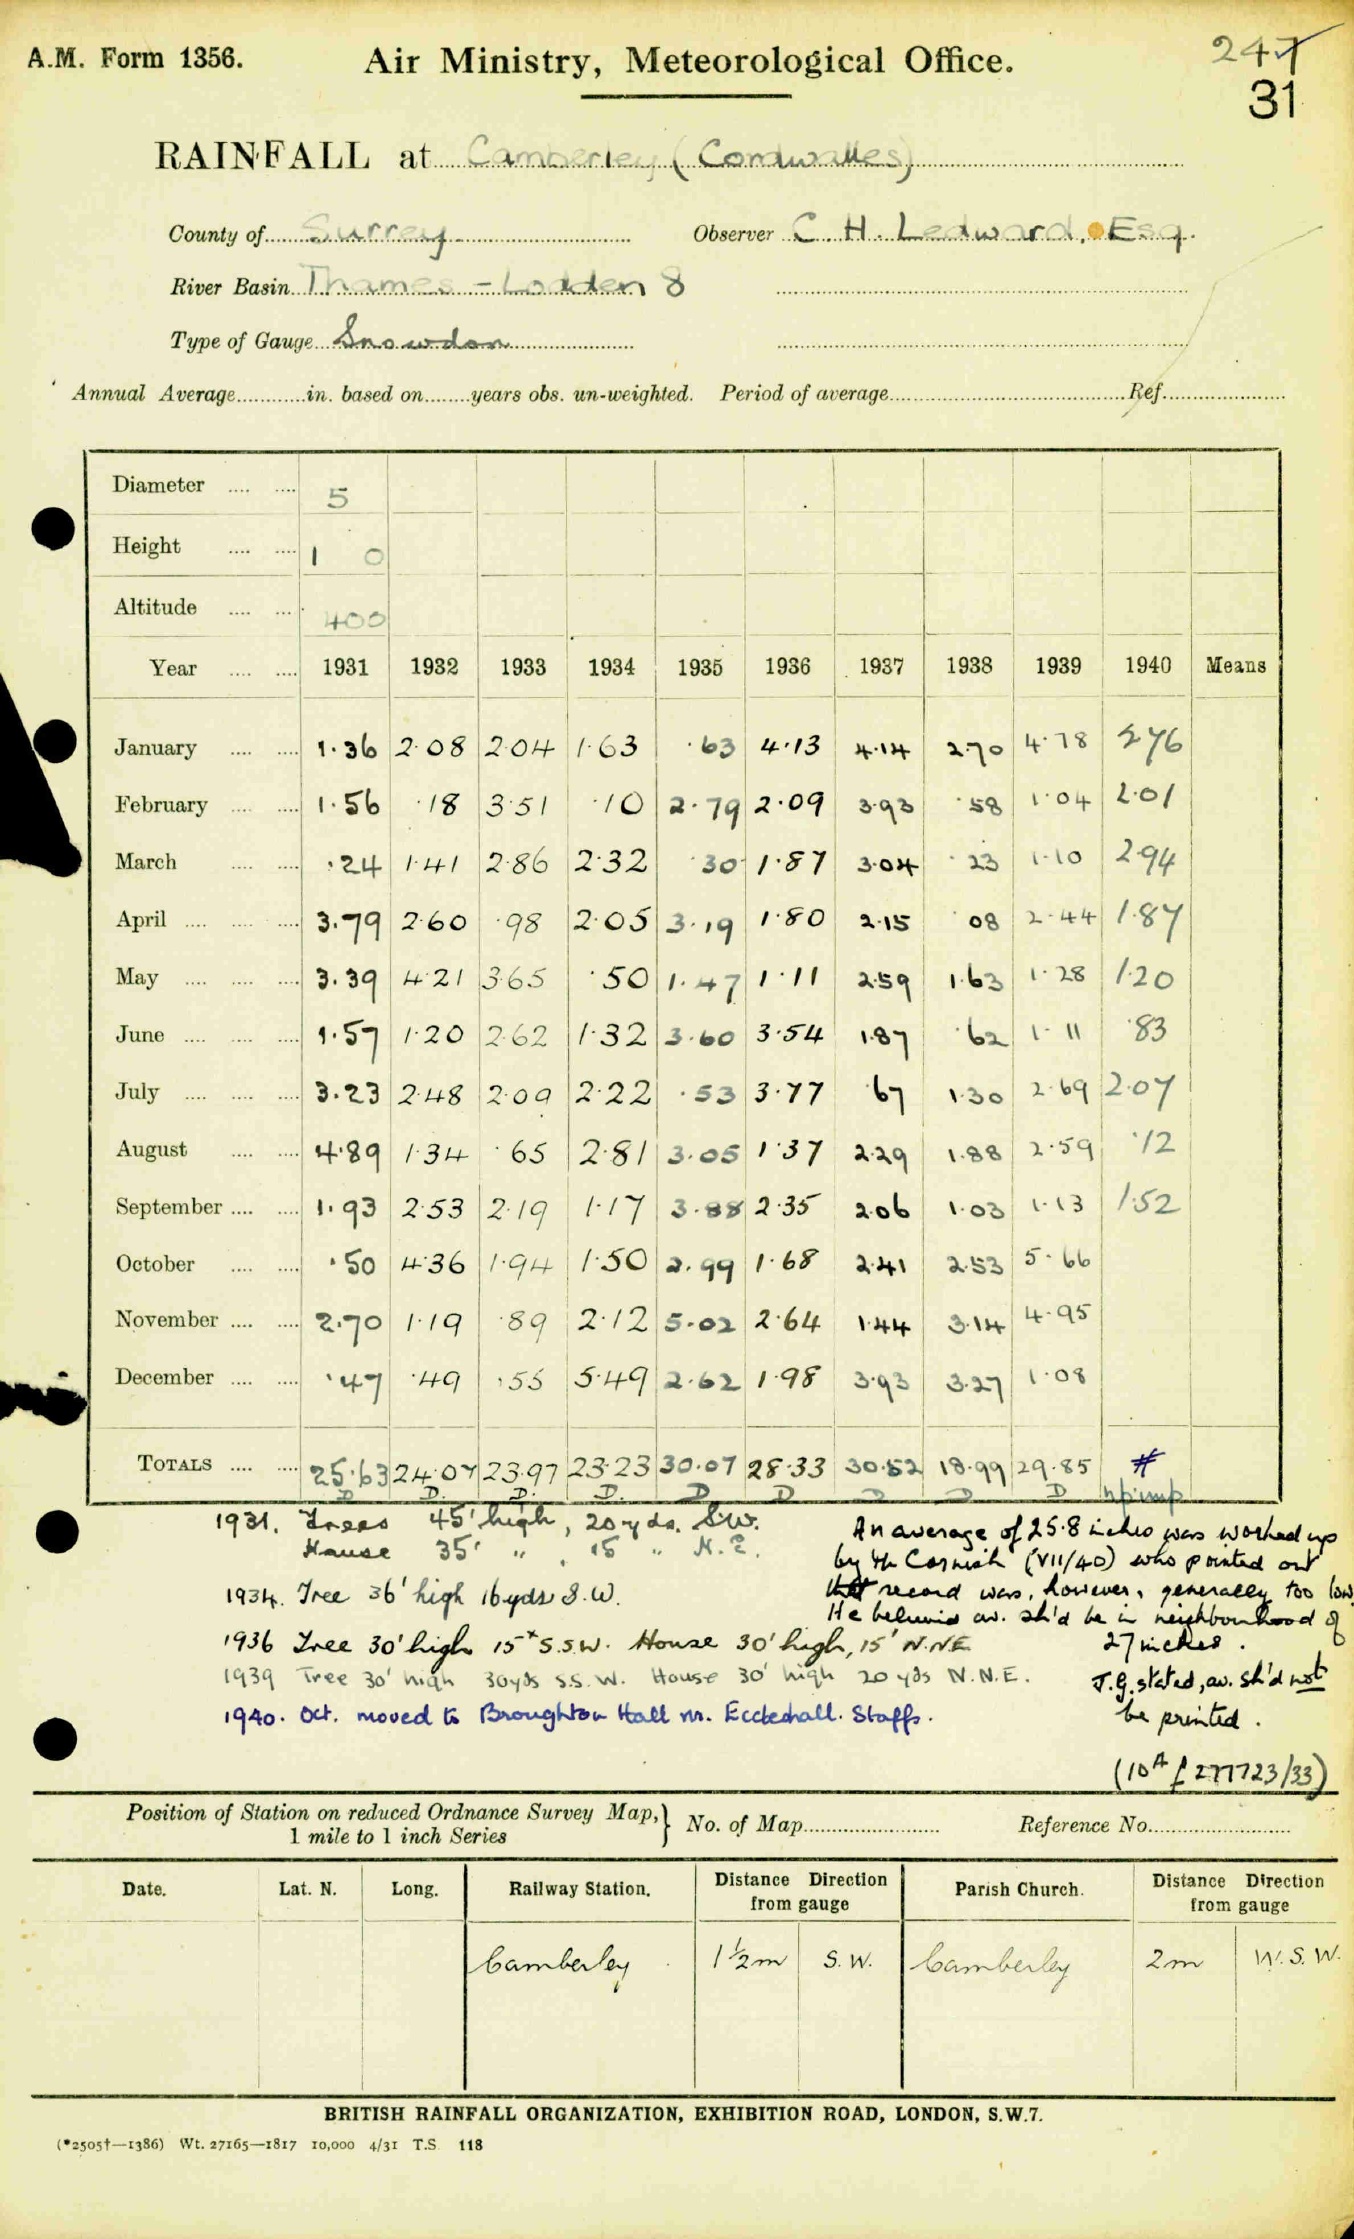 A.M. Form 1356.
Air Ministry, Meteorological Office.
247
31
RAINFALL at Camberley (Cordwalles)
County of Surrey Observer C H. Ledward, Esq.
River Basin Thames - Lodden 8
Type of Gauge Snowdon
Annual Average in. based on years obs. un-weighted. Period of average Ref.
Diameter 5
Height 1 0
Altitude 400
Year 1931 1932 1933 1934 1935 1936 1937 1938 1939 1940 Means
January 1.36 2.08 2.04 1.63 .63 4.13 4.14 2.70 4.78 2.76
February 1.56 .18 3.51 .10 2.79 2.09 3.93 .58 1.04 2.01
March .24 1.41 2.86 2.32 .30 1.87 3.04 .23 1.10 2.94
April 3.79 2.60 .98 2.05 3.19 1.80 2.15 .08 2.44 1.87
May 3.39 4.21 3.65 .50 1.47 1.11 2.59 1.63 1.28 1.20
June 1.57 1.20 2.62 1.32 3.60 3.54 1.87 .62 1.11 .83
July 3.23 2.48 2.09 2.22 .53 3.77 .67 1.30 2.69 2.07
August 4.89 1.34 .65 2.81 3.05 1.37 2.29 1.88 2.59 .12
September 1.93 2.53 2.19 1.17 3.88 2.35 2.06 1.03 1.13 1.52
October .50 4.36 1.94 1.50 2.99 1.68 2.41 2.53 5.66
November 2.70 1.19 .89 2.12 5.02 2.64 1.44 3.14 4.95
December .47 .49 .55 5.49 2.62 1.98 3.93 3.27 1.08
TOTALS 25.63 24.07 23.97 23.23 30.07 28.33 30.52 18.99 29.85 #
D D. D. D. D D D D D
1931. Trees 45' high, 20 yds. S.W.
House 35' " , 15 " N.E.
1934. Tree 36' high 16yds S.W.
1936 Tree 30' high 15ˣ S.S.W. House 30' high, 15' N.NE
1939 Tree 30' high 30yds S.S.W. House 30' high 20 yds N.N.E.
1940. Oct. moved to Broughton Hall nr. Eccleshall. Staffs.
An average of 25.8 inches was worked up
by Mr Cornish (VII/40) who pointed out
that record was, however, generally too low.
He believed av. sh'd be in neighbourhood of
27 inches.
J.G. stated, av. sh'd not
be printed.
Position of Station on reduced Ordnance Survey Map, } No. of Map Reference No.
1 mile to 1 inch Series
Date. Lat. N. Long. Railway Station. Distance Direction from gauge Parish Church. Distance Direction from gauge
Camberley 1½m S.W. Camberley 2m W.S.W.
BRITISH RAINFALL ORGANIZATION, EXHIBITION ROAD, LONDON, S.W.7.
(*2505†—1386) Wt. 27165—1817 10,000 4/31 T.S 118